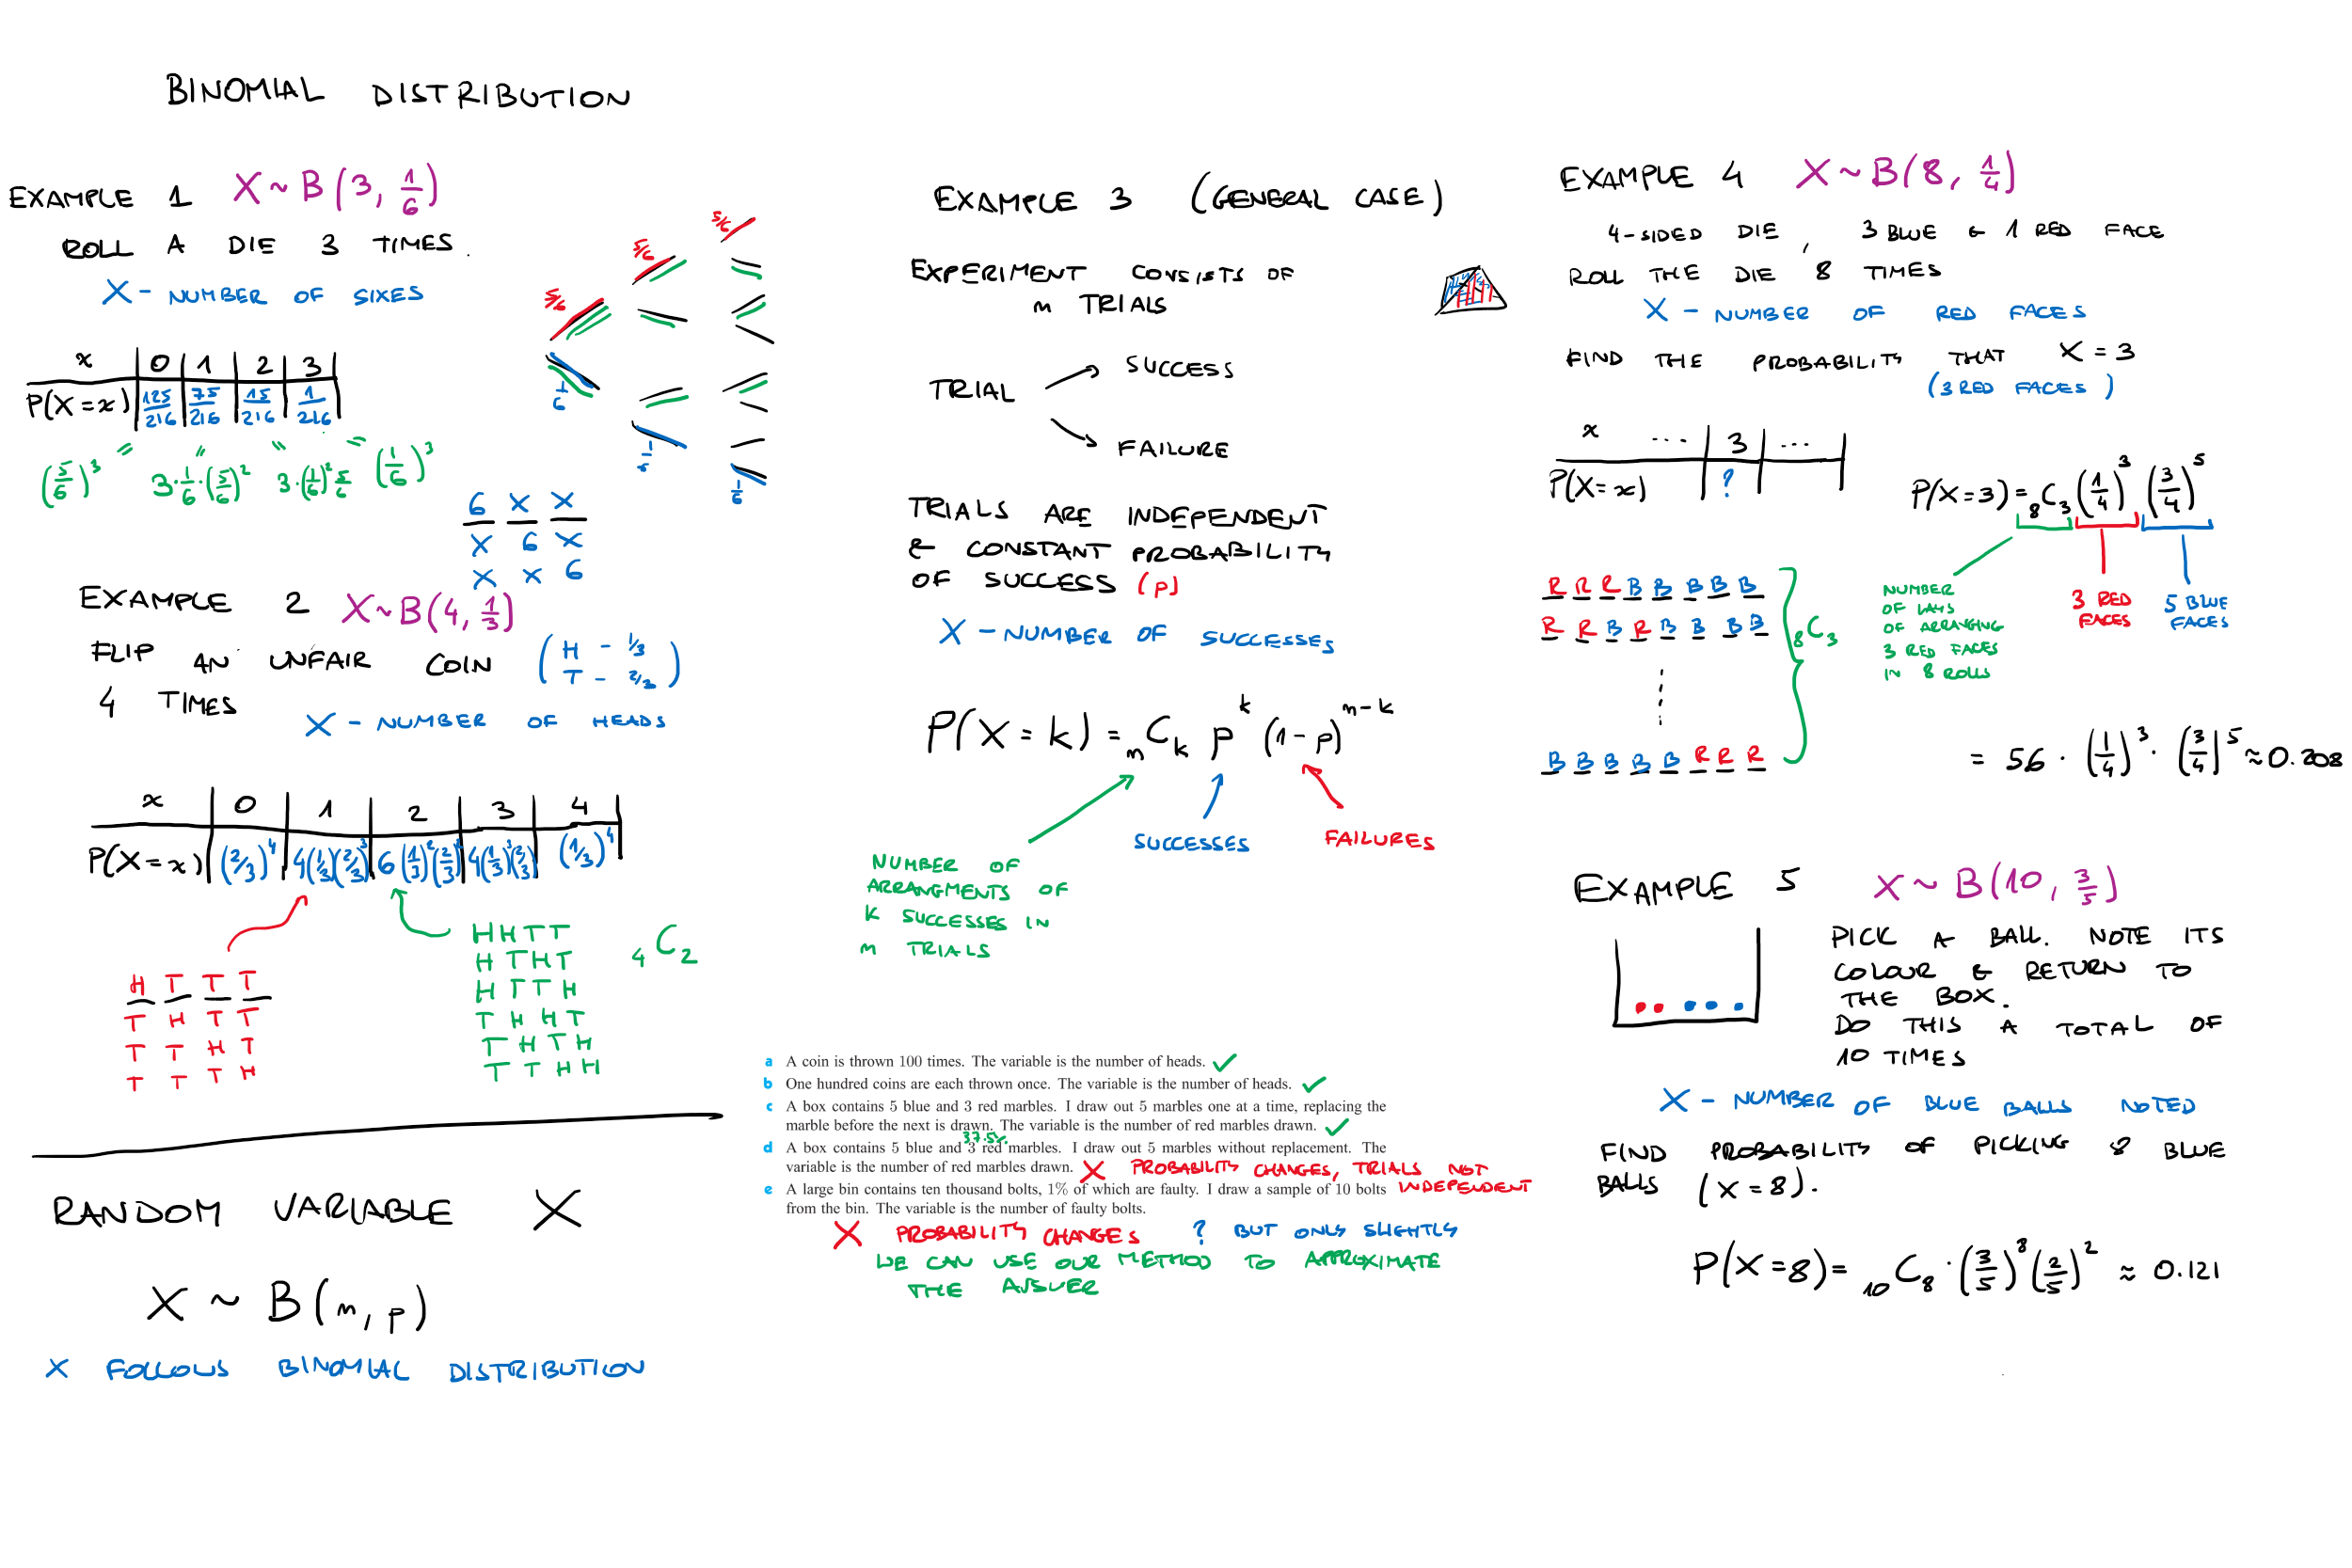 BINOMIAL DISTRIBUTION
EXAMPLE 1 X ~ B(3, 1/6)
ROLL A DIE 3 TIMES.
X - NUMBER OF SIXES
x 0 1 2 3
P(X=x) 125/216 75/216 15/216 1/216
(5/6)³ = 3·1/6·(5/6)² = 3·(1/6)²5/6 = (1/6)³ =
5/6 5/6 5/6
1/6 1/6 1/6
6 X X
X 6 X
X X 6
EXAMPLE 2 X~B(4, 1/3)
FLIP AN UNFAIR COIN (H - 1/3
T - 2/3)
4 TIMES
X - NUMBER OF HEADS
x 0 1 2 3 4
P(X=x) (2/3)⁴ 4(1/3)(2/3)³ 6(1/3)²(2/3)² 4(1/3)³(2/3) (1/3)⁴
H T T T
T H T T
T T H T
T T T H
HHTT
HTHT
HTTH
THHT
THTH
TTHH
₄C₂
RANDOM VARIABLE X
X ~ B(n, p)
X FOLLOWS BINOMIAL DISTRIBUTION
EXAMPLE 3 (GENERAL CASE)
EXPERIMENT CONSISTS OF
n TRIALS
TRIAL
SUCCESS
FAILURE
TRIALS ARE INDEPENDENT
& CONSTANT PROBABILITY
OF SUCCESS (p)
X - NUMBER OF SUCCESSES
P(X = k) = ₙCₖ pᵏ (1-p)ⁿ⁻ᵏ
SUCCESSES
FAILURES
NUMBER OF
ARRANGMENTS OF
K SUCCESSES IN
n TRIALS
a A coin is thrown 100 times. The variable is the number of heads. ✓
b One hundred coins are each thrown once. The variable is the number of heads. ✓
c A box contains 5 blue and 3 red marbles. I draw out 5 marbles one at a time, replacing the
marble before the next is drawn. The variable is the number of red marbles drawn. ✓
37.5%
d A box contains 5 blue and 3 red marbles. I draw out 5 marbles without replacement. The
variable is the number of red marbles drawn. X PROBABILITY CHANGES, TRIALS NOT
INDEPENDENT
e A large bin contains ten thousand bolts, 1% of which are faulty. I draw a sample of 10 bolts
from the bin. The variable is the number of faulty bolts.
X PROBABILITY CHANGES ? BUT ONLY SLIGHTLY
WE CAN USE OUR METHOD TO APPROXIMATE
THE ANSWER
EXAMPLE 4 X~B(8, 1/4)
4-SIDED DIE, 3 BLUE & 1 RED FACE
ROLL THE DIE 8 TIMES
X - NUMBER OF RED FACES
FIND THE PROBABILITY THAT X = 3
(3 RED FACES)
x ... 3 ...
P(X=x) ?
P(X=3) = ₈C₃ (1/4)³ (3/4)⁵
R R R B B B B B
R R B R B B B B
B B B B B R R R
₈C₃
NUMBER
OF WAYS
OF ARRANGING
3 RED FACES
IN 8 ROLLS
3 RED
FACES
5 BLUE
FACES
= 56 · (1/4)³ · (3/4)⁵ ≈ 0.208
EXAMPLE 5 X ~ B(10, 3/5)
PICK A BALL. NOTE ITS
COLOUR & RETURN TO
THE BOX.
DO THIS A TOTAL OF
10 TIMES
X - NUMBER OF BLUE BALLS NOTED
FIND PROBABILITY OF PICKING 8 BLUE
BALLS (X=8).
P(X=8) = ₁₀C₈ · (3/5)⁸ (2/5)² ≈ 0.121